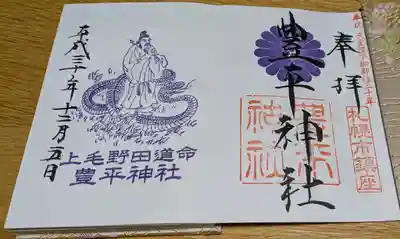 奉拝
札幌市鎮座
豊平神社
平成三十年十二月五日
上毛野田道命
豊平神社